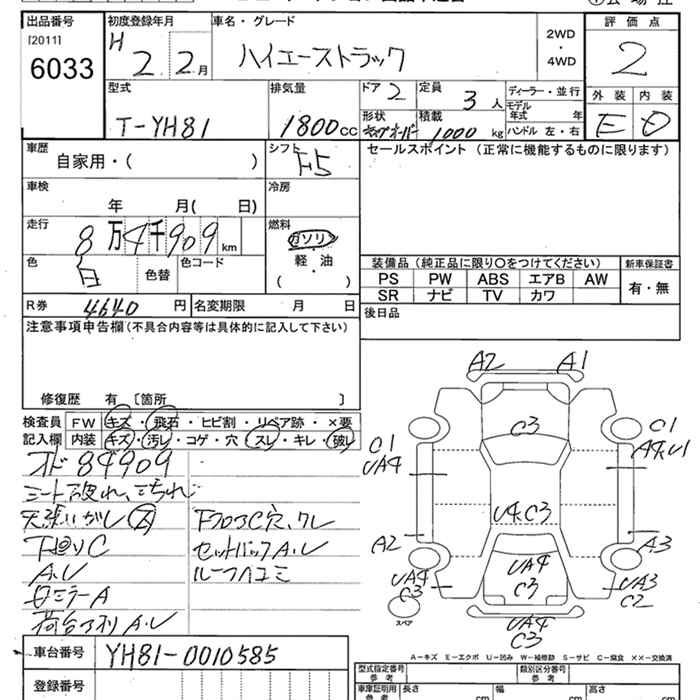 出品番号
[2011]
6033
初度登録年月
H 2 2月
車名・グレード
ハイエーストラック
2WD
・
4WD
評価点
2
型式
T-YH81
排気量
1800cc
ドア 2
定員 3人
ディーラー・並行
モデル年式 年
ハンドル 左・右
形状
積載 1000kg
外装 内装
E D
車歴
自家用・( )
シフト F5
セールスポイント (正常に機能するものに限ります)
車検
年 月( 日)
冷房
走行
8万4千909km
燃料
ガソリン
軽・油
( )
色 白 色替
色コード
装備品 (純正品に限り○をつけてください)
新車保証書
PS PW ABS エアB AW
SR ナビ TV カワ
有・無
R券 4640円
名変期限 月 日
後日品
注意事項申告欄(不具合内容等は具体的に記入して下さい)
修復歴 有 [箇所 ]
検査員記入欄
FW キズ・飛石・ヒビ割・リペア跡・×要
内装 キズ・汚レ・コゲ・穴・スレ・キレ・破レ
オド 84909
シート破れ、
天張ハガレ
下廻りC
A.U
ロミラーA
荷台アオリ A.U
FフロアC穴、クレ
セットバックA.U
ルーフヘコミ
A2 A1
C3
C1
UA4
C1
A4,U1
U4.C3
A2
A3
UA4
C3
UA4
C3
UA3
C2
UA4
C3
スペア
A−キズ E−エクボ U−凹み W−補修跡 S−サビ C−腐食 ××−交換済
車台番号 YH81-0010585
登録番号
型式指定番号
参考
類別区分番号
参考
車庫証明用
参考
長さ cm
幅 cm
高さ cm